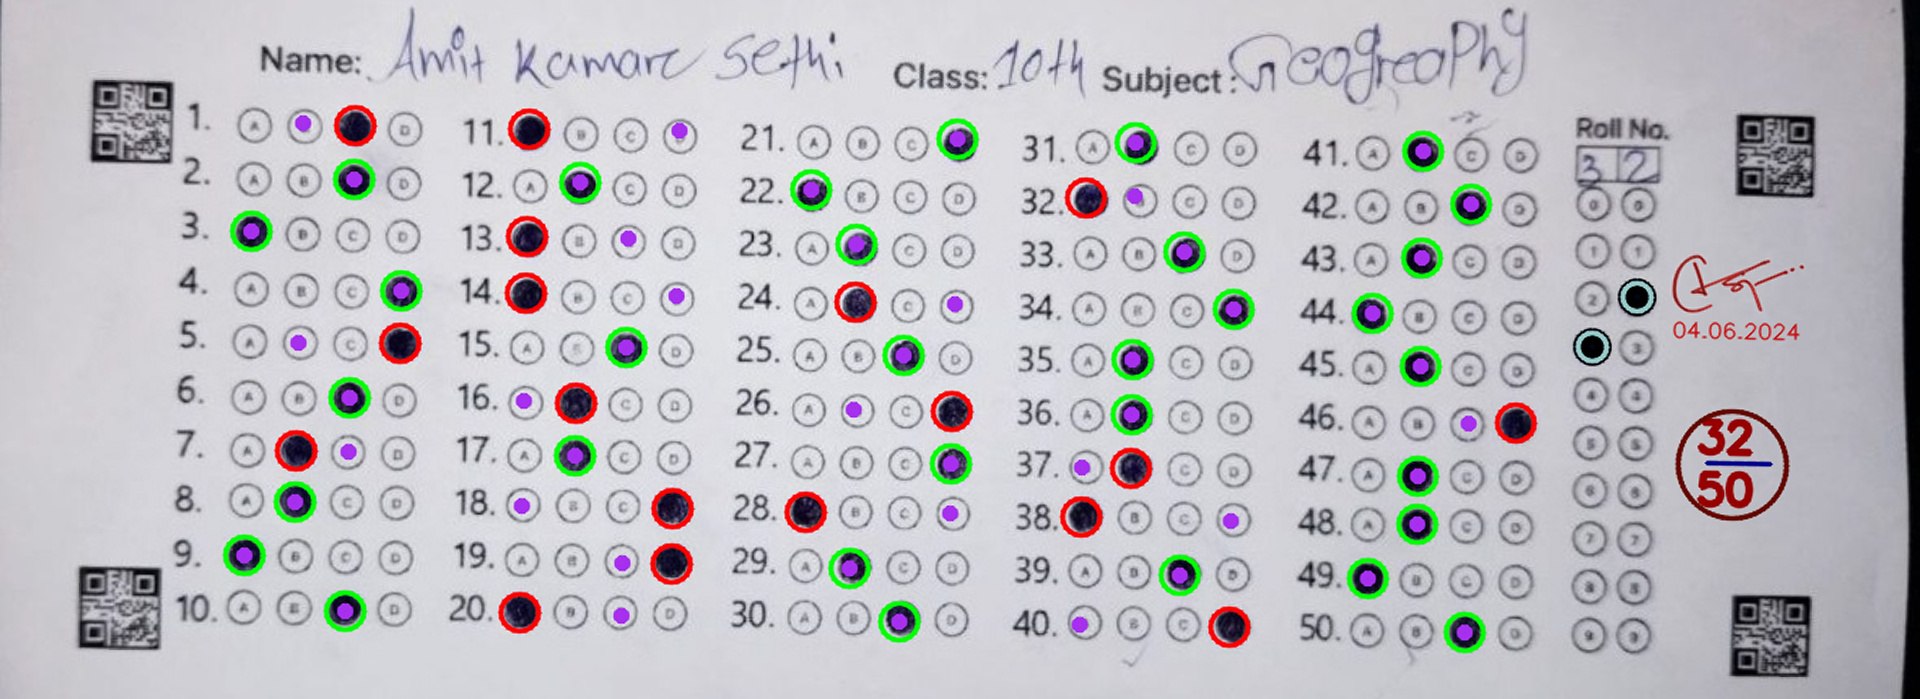 Name: Amit Kumar Sethi Class: 10th Subject: Geography
1. A D
2. A B D
3. B C D
4. A B C
5. A C
6. A B D
7. A D
8. A C D
9. B C D
10. A B D
11. B C
12. A C D
13. B D
14. B C
15. A B D
16. C D
17. A C D
18. B C
19. A B
20. B D
21. A B C
22. B C D
23. A C D
24. A C
25. A B D
26. A C
27. A B C
28. B C
29. A C D
30. A B D
31. A C D
32. C D
33. A B D
34. A B C
35. A C D
36. A C D
37. C D
38. B C
39. A B D
40. B C
41. A C D
42. A B D
43. A C D
44. B C D
45. A C D
46. A B
47. A C D
48. A C D
49. B C D
50. A B D
Roll No.
3 2
0 0
1 1
2
3
4 4
5 5
6 6
7 7
8 8
9 9
04.06.2024
32
50